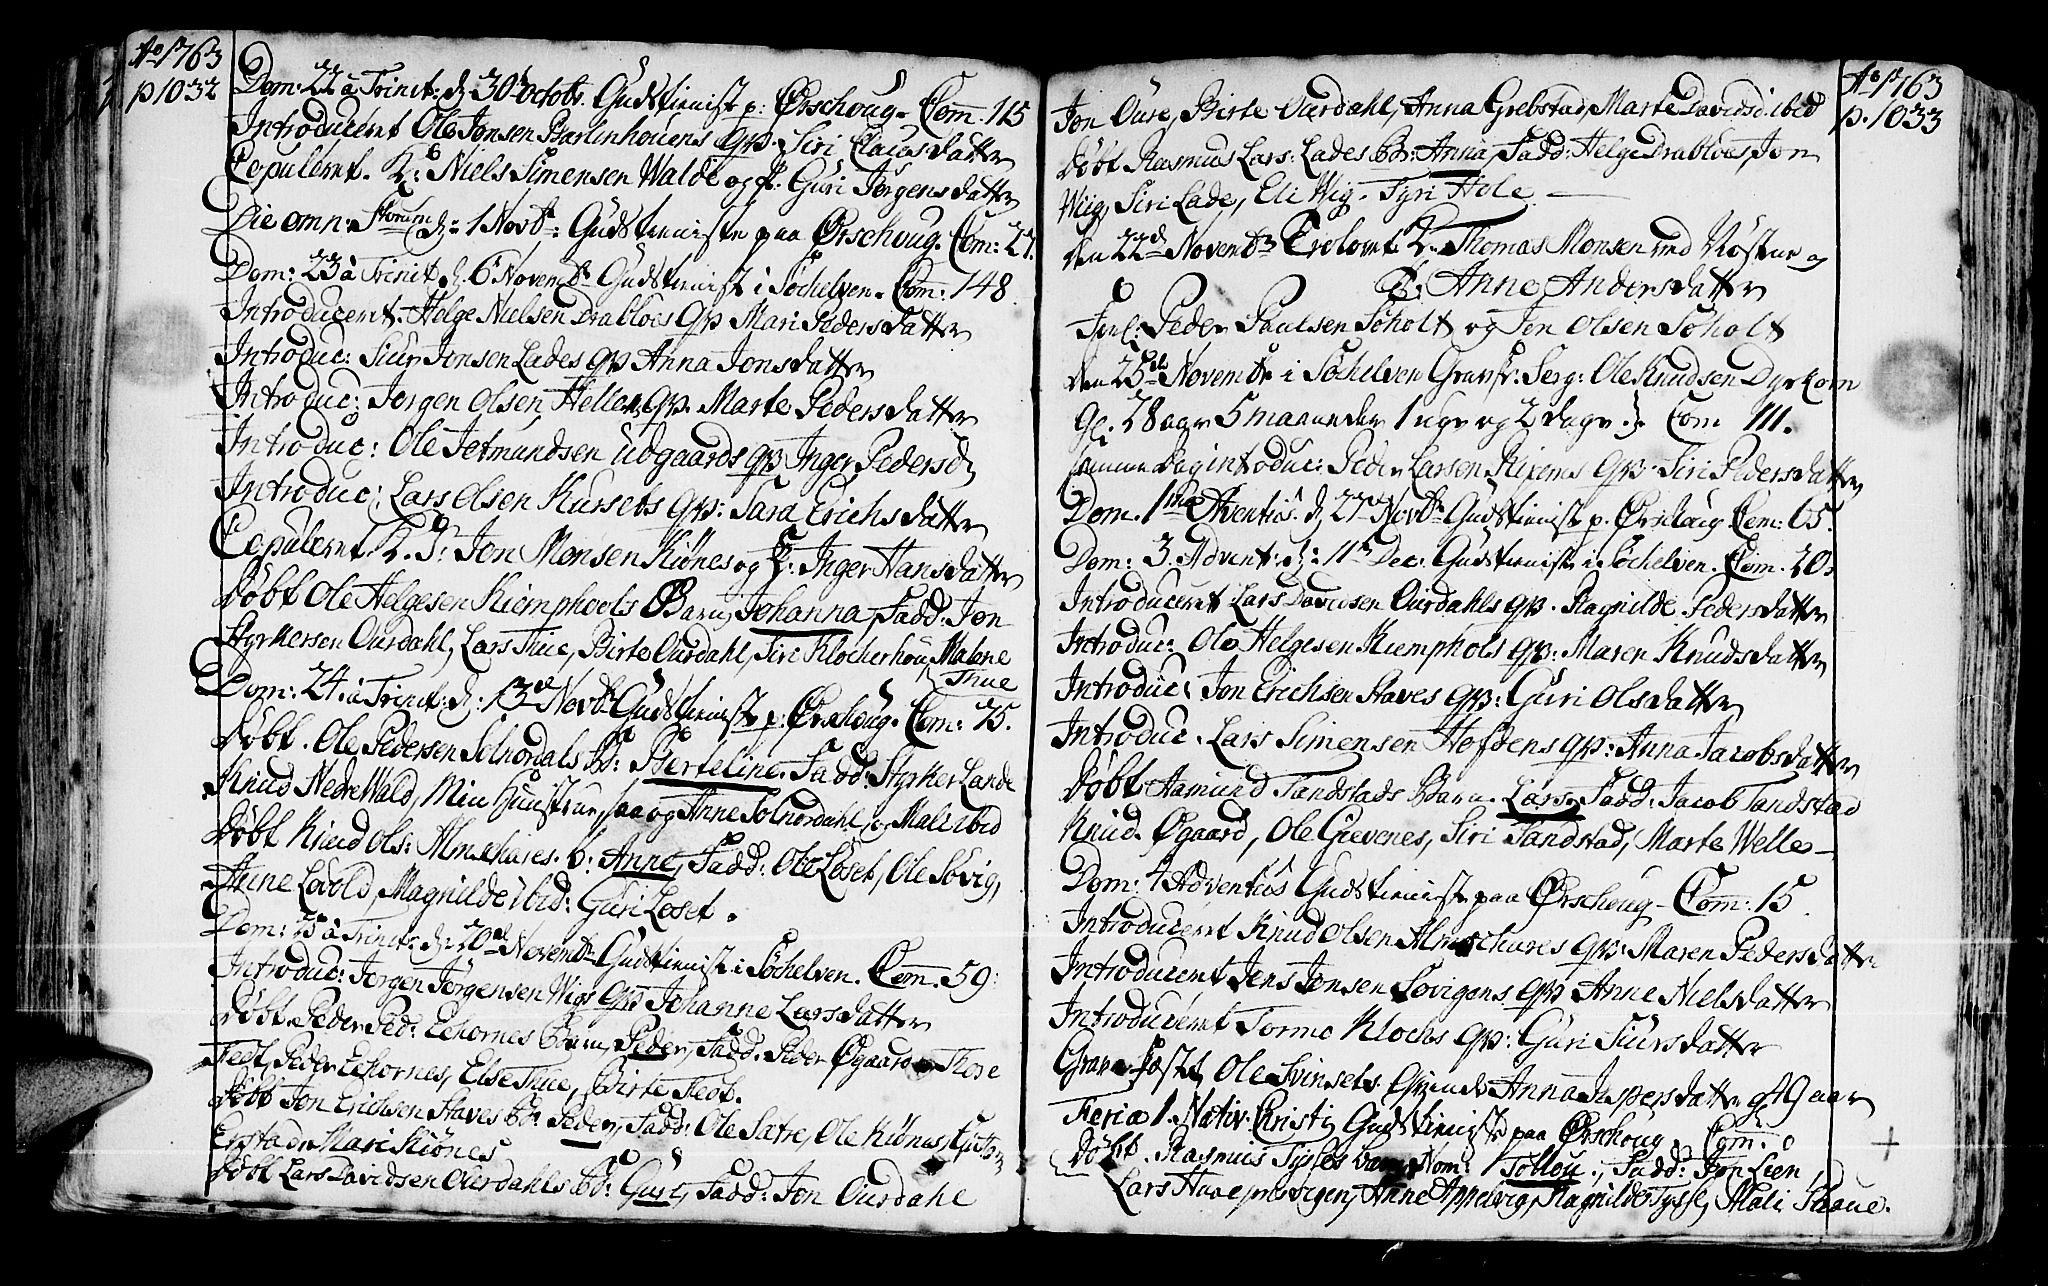 Ao 1763
p 1032
Dom: 22 à Trinit: d. 30 octobr. Gudstienist p: Ørschoug. Com. 115
Introduceret Ole Jonsen Barlinhouens qv: Siri Clausdatter
Copuleret. K: Niels Simensen Walde og p: Guri Jørgensdatter
Die omn: Storum d: 1 Novbr: Gudstieniste paa Ørschoug. Com: 27.
Dom: 23 à Trinit. d. 6 Novembr Gudstienist i Søchelven. Com: 148
Introduceret Helge Nielsen Drabloes qv Mari Pedersdatter
Introduc: Siur Jensen Lades qv Anna Jonsdatter
Introduc: Jørgen Olsen Hellen qv. Marte Pedersdatter
Introduc: Ole Jetmundsen Udgaards qv Inger Pedersd
Introduc: Lars Olsen Kursets qv: Sara Erichsdatter
Copuleret K. Jon Monsen Kiønes og P: Inger Hansdatter
Døbt Ole Helgesen Kiemphols Barn Johanna, Fadd: Jon
Styrkersen Ourdahl, Lars Thue, Birte Ourdahl, Siri Klocherhou, Malene
Thue
Dom: 24 à Trinit: d: 13 Novbr Gudstienist p: Ørschoug. Com: 75.
Døbt. Ole Pedersen Solnordals B: Berteline. Fadd: Styrker Lande
Knud Nedre Wald, Min Hustrue, saa og Anne Solnordahl og Mali ibid
Døbt Knud Ols: Almschares. b: Anne, Fadd: Ole Løset, Ole Søvig,
Anne Lovold, Magnilde ibid: Guri Løset.
Dom: 25 à Trinit. d: 20 Novembr Gudstienist i Søchelven. Com. 59:
Introduc: Jørgen Jørgensen Wigs qv Johanne Larsdatter
Døbt. Peder Ped: Echornes barn, Peder, Fadd: Peder Øgaard Those
Fedt, Peder Echornes, Else Thue, Birte Fedt.
Døbt Jon Erichsen Staves B: Peder, Fadd: Ole Sætre, Ole Kiønes,
Erstad, Mari Kiønes
Døbt Lars Davidsen Ourdahls B: Guri, Fadd: Jon Ourdahl
Ao 1763
p. 1033
Jon Oure, Birte Ourdahl, Anna Grebstad, Marte Davidsd ibid
Døbt Rasmus Lars: Lades B: Anna, Fadd: Helge Drabloes, Jon
Wiig, Siri Lade, Eli Wig. Syri Hole
den 22d Novembr Trolovet K. Thomas Monsen ved Røstene og
P: Anne Andersdatter
Forl: Peder Paulsen Soholt og Jon Olsen Soholt
den 25de Novembr i Søchelven Gravf. Serg: Ole Knudsen Dyrkorn
gl. 28 aar 5 maaneder 1 uge og 2 dage. Com 111.
samme dag introduc: Peder Larsen qv: Siri Pedersdatter
Dom. 1ma Adventus. d. 27 Novbr Gudstienist p. Ørschoug Com: 65.
Dom: 3. Advent: d: 11 Dec: Gudstienist i Søchelven. Com. 20.
Introduceret Lars Davidsen Ourdahls qv. Ragnilde Pedersdatter
Introduc: Ole Helgesen Kiemphols qv: Maren Knudsdatter
Introduc: Jon Erichsen Staves qv: Guri Olsdatter
Introduc. Lars Simensen Hofdens qv: Anna Jacobsdatter
Døbt Aamund Tandstads Barn. Lars. Fadd: Jacob Tandstad
Knud Øgaard, Ole Gievenes, Siri Tandstad, Marte Welle
Dom: 4 Adventus Gudstienist paa Ørschoug. Com: 15
Introduceret Knud Olsen Almschares qv: Maren Pedersdatter
Introduceret Jens Jonsen Søvigens qv: Anne Nielsdatter
Introduceret Tormo Klochs qv: Guri Siursdatter
Gravfæstet Ole Svinsets Qvinde Anna Jespersdatter 49 aar
Feria 1. Nativ: Christi Gudstieniste paa Ørschoug. Com: 0
Døbt. Rasmus Tysses barn, Nom: Tollou, Fadd: Jon Lien,
Lars Haae Søvigen, Anne Appelvig, Ragnilde Tysse, Mali Skoue.